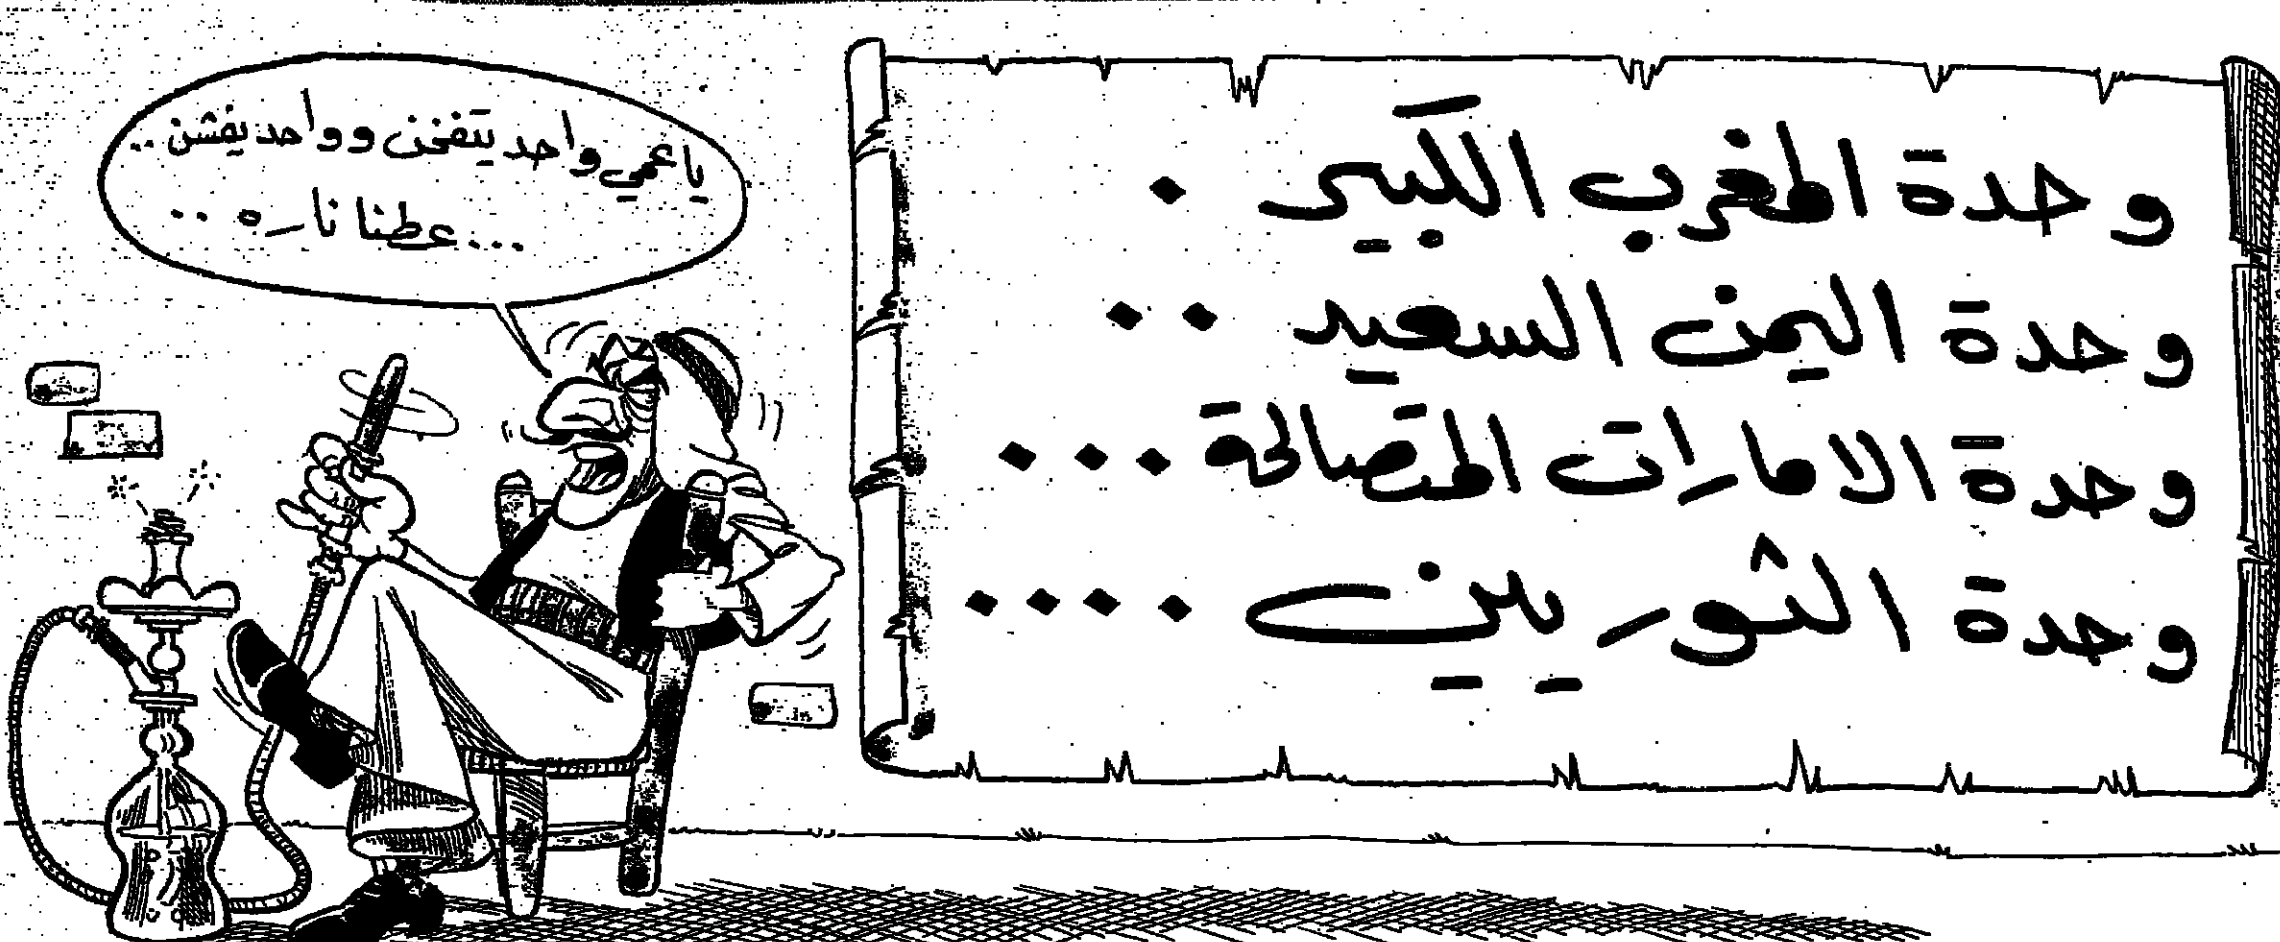 وحدة المغرب الكبير .
وحدة اليمن السعيد ..
وحدة الامارات المتصالحة ...
وحدة الثوريين ....
ياعمي واحد يتفخن وواحد يفشن ..
... عطنا ناره ..